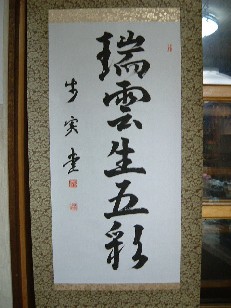 瑞雲生五彩
步実書